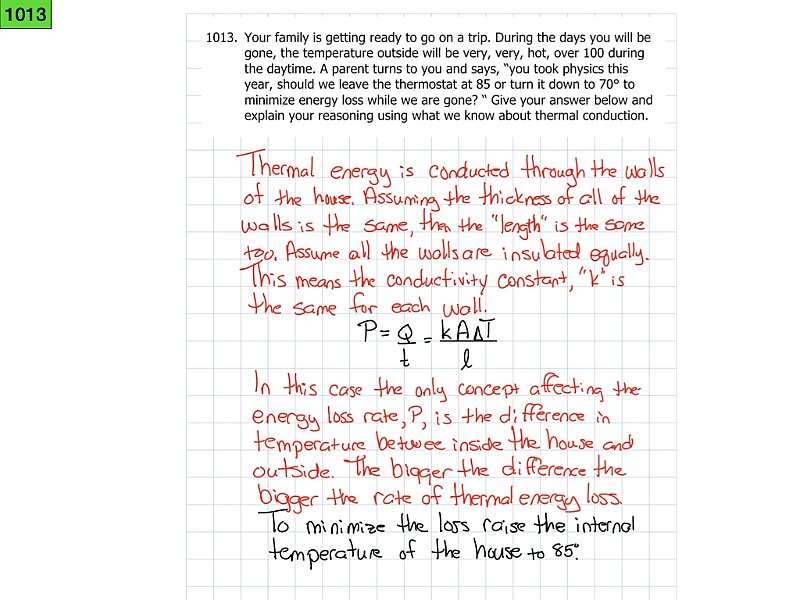 1013
1013. Your family is getting ready to go on a trip. During the days you will be
gone, the temperature outside will be very, very, hot, over 100 during
the daytime. A parent turns to you and says, "you took physics this
year, should we leave the thermostat at 85 or turn it down to 70° to
minimize energy loss while we are gone? " Give your answer below and
explain your reasoning using what we know about thermal conduction.
Thermal energy is conducted through the walls
of the house. Assuming the thickness of all of the
walls is the same, then the "length" is the same
too. Assume all the walls are insulated equally.
This means the conductivity constant, "k" is
the same for each wall.
P = Q/t = kAΔT/l
In this case the only concept affecting the
energy loss rate, P, is the difference in
temperature betwee inside the house and
outside. The bigger the difference the
bigger the rate of thermal energy loss.
To minimize the loss raise the internal
temperature of the house to 85°.